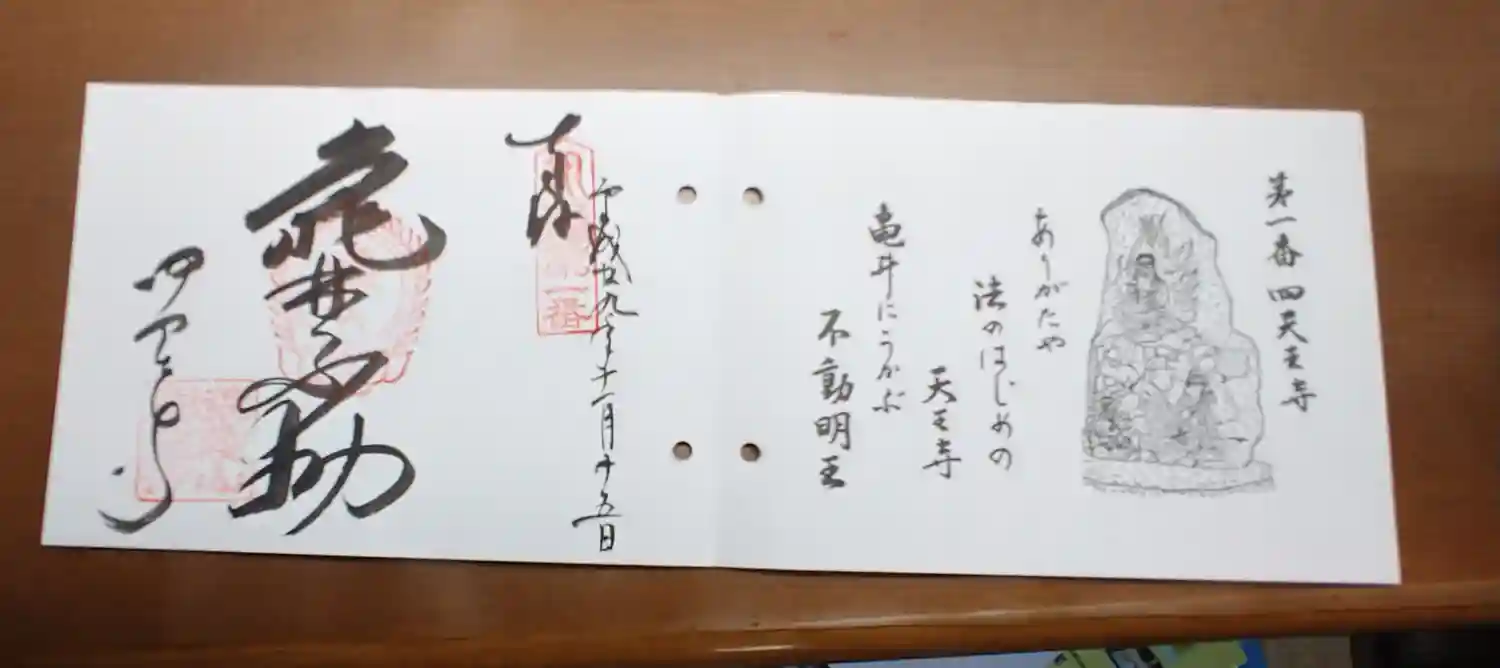 第一番 四天王寺
ありがたや
法のはじめの
天王寺
亀井にうかぶ
不動明王
奉拝
第一番
平成廿九年十一月廿五日
亀井不動
四天王寺